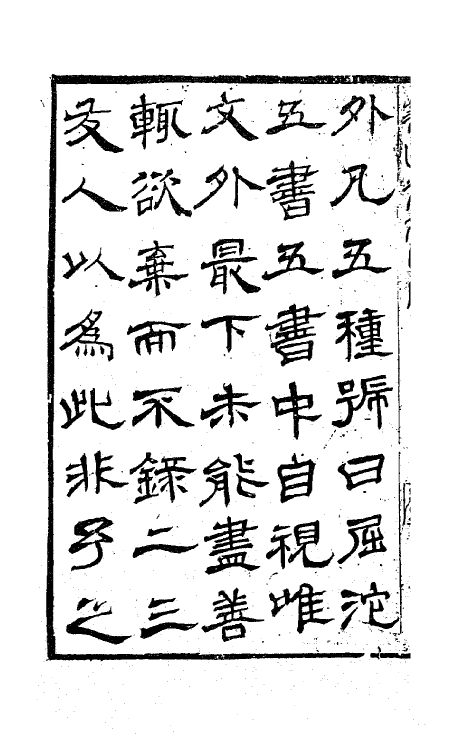 外凡五種號曰屈沱
五書五書中自視唯
文外最下未能盡善
輒欲棄而不錄二三
友人以為此非子之